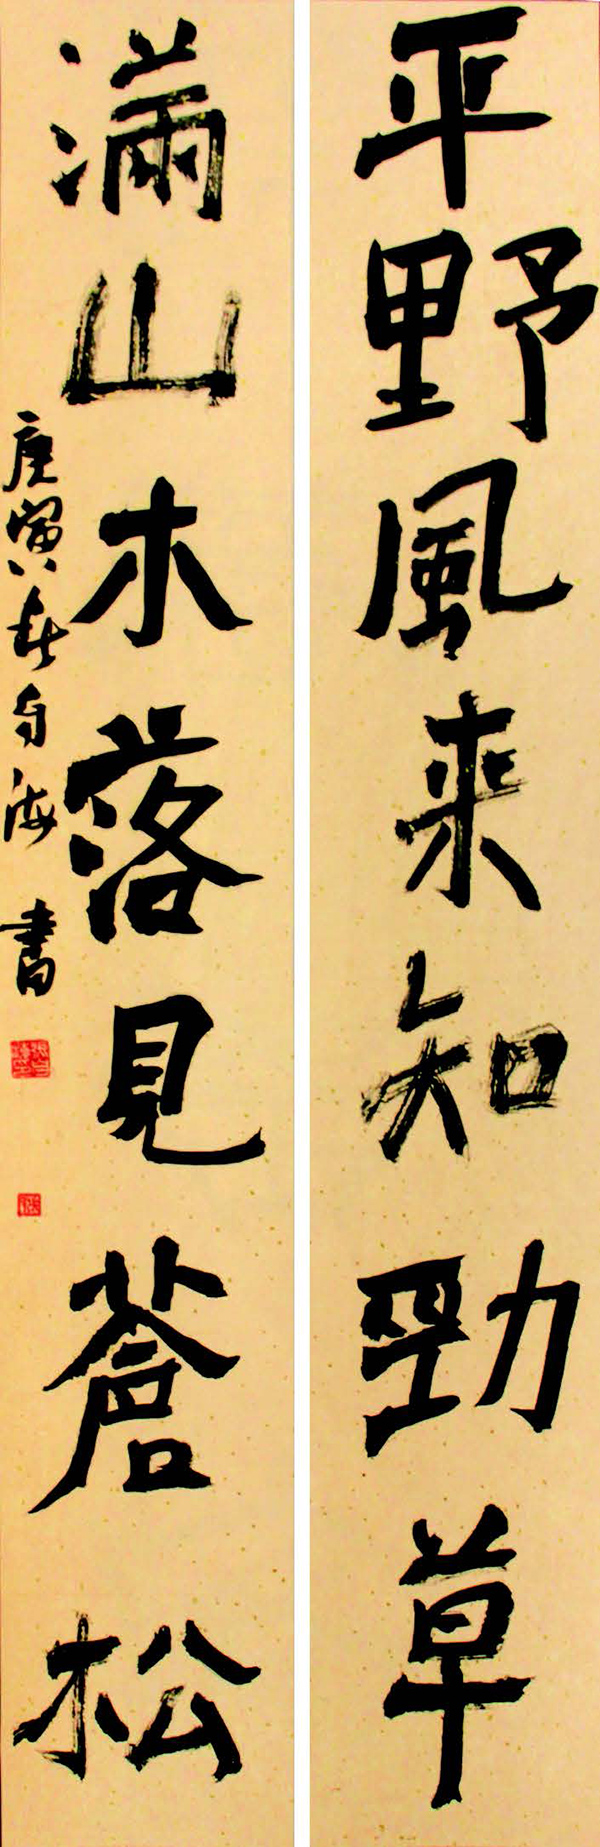 平野風来知勁草
滿山木落見蒼松
庚寅八秋自海書